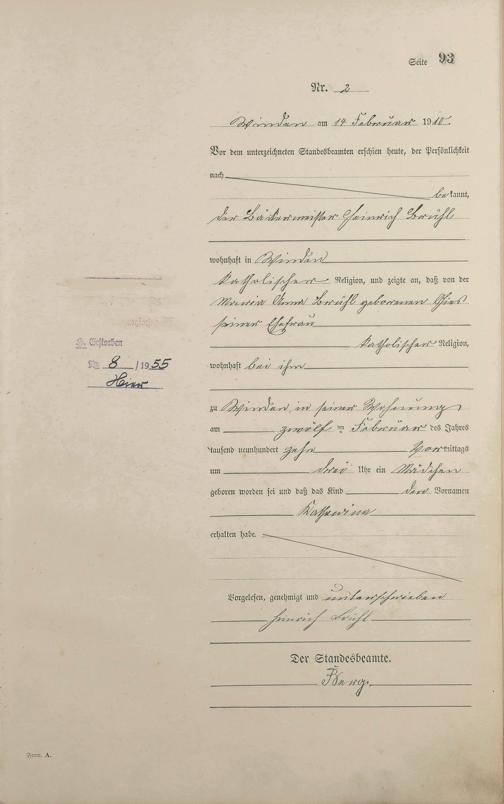 Seite 93
Nr. 2
Winden am 14 Februar 1910.
Vor dem unterzeichneten Standesbeamten erschien heute, der Persönlichkeit
nach
bekannt,
der Bäckermeister Heinrich Brühl
wohnhaft in Winden
katholischer Religion, und zeigte an, daß von der
Maria Anna Brühl geborenen
seiner Ehefrau
katholischer Religion,
wohnhaft bei ihm
zu Winden in seiner Wohnung
am zwölf ten Februar des Jahres
tausend neunhundert zehn Vormittags
um drei Uhr ein Mädchen
geboren worden sei und daß das Kind den Vornamen
Katharina
erhalten habe.
Vorgelesen, genehmigt und unterschrieben
Heinrich Brühl
Der Standesbeamte.
Gestorben
Nr. 8/1955
Hier
Form. A.